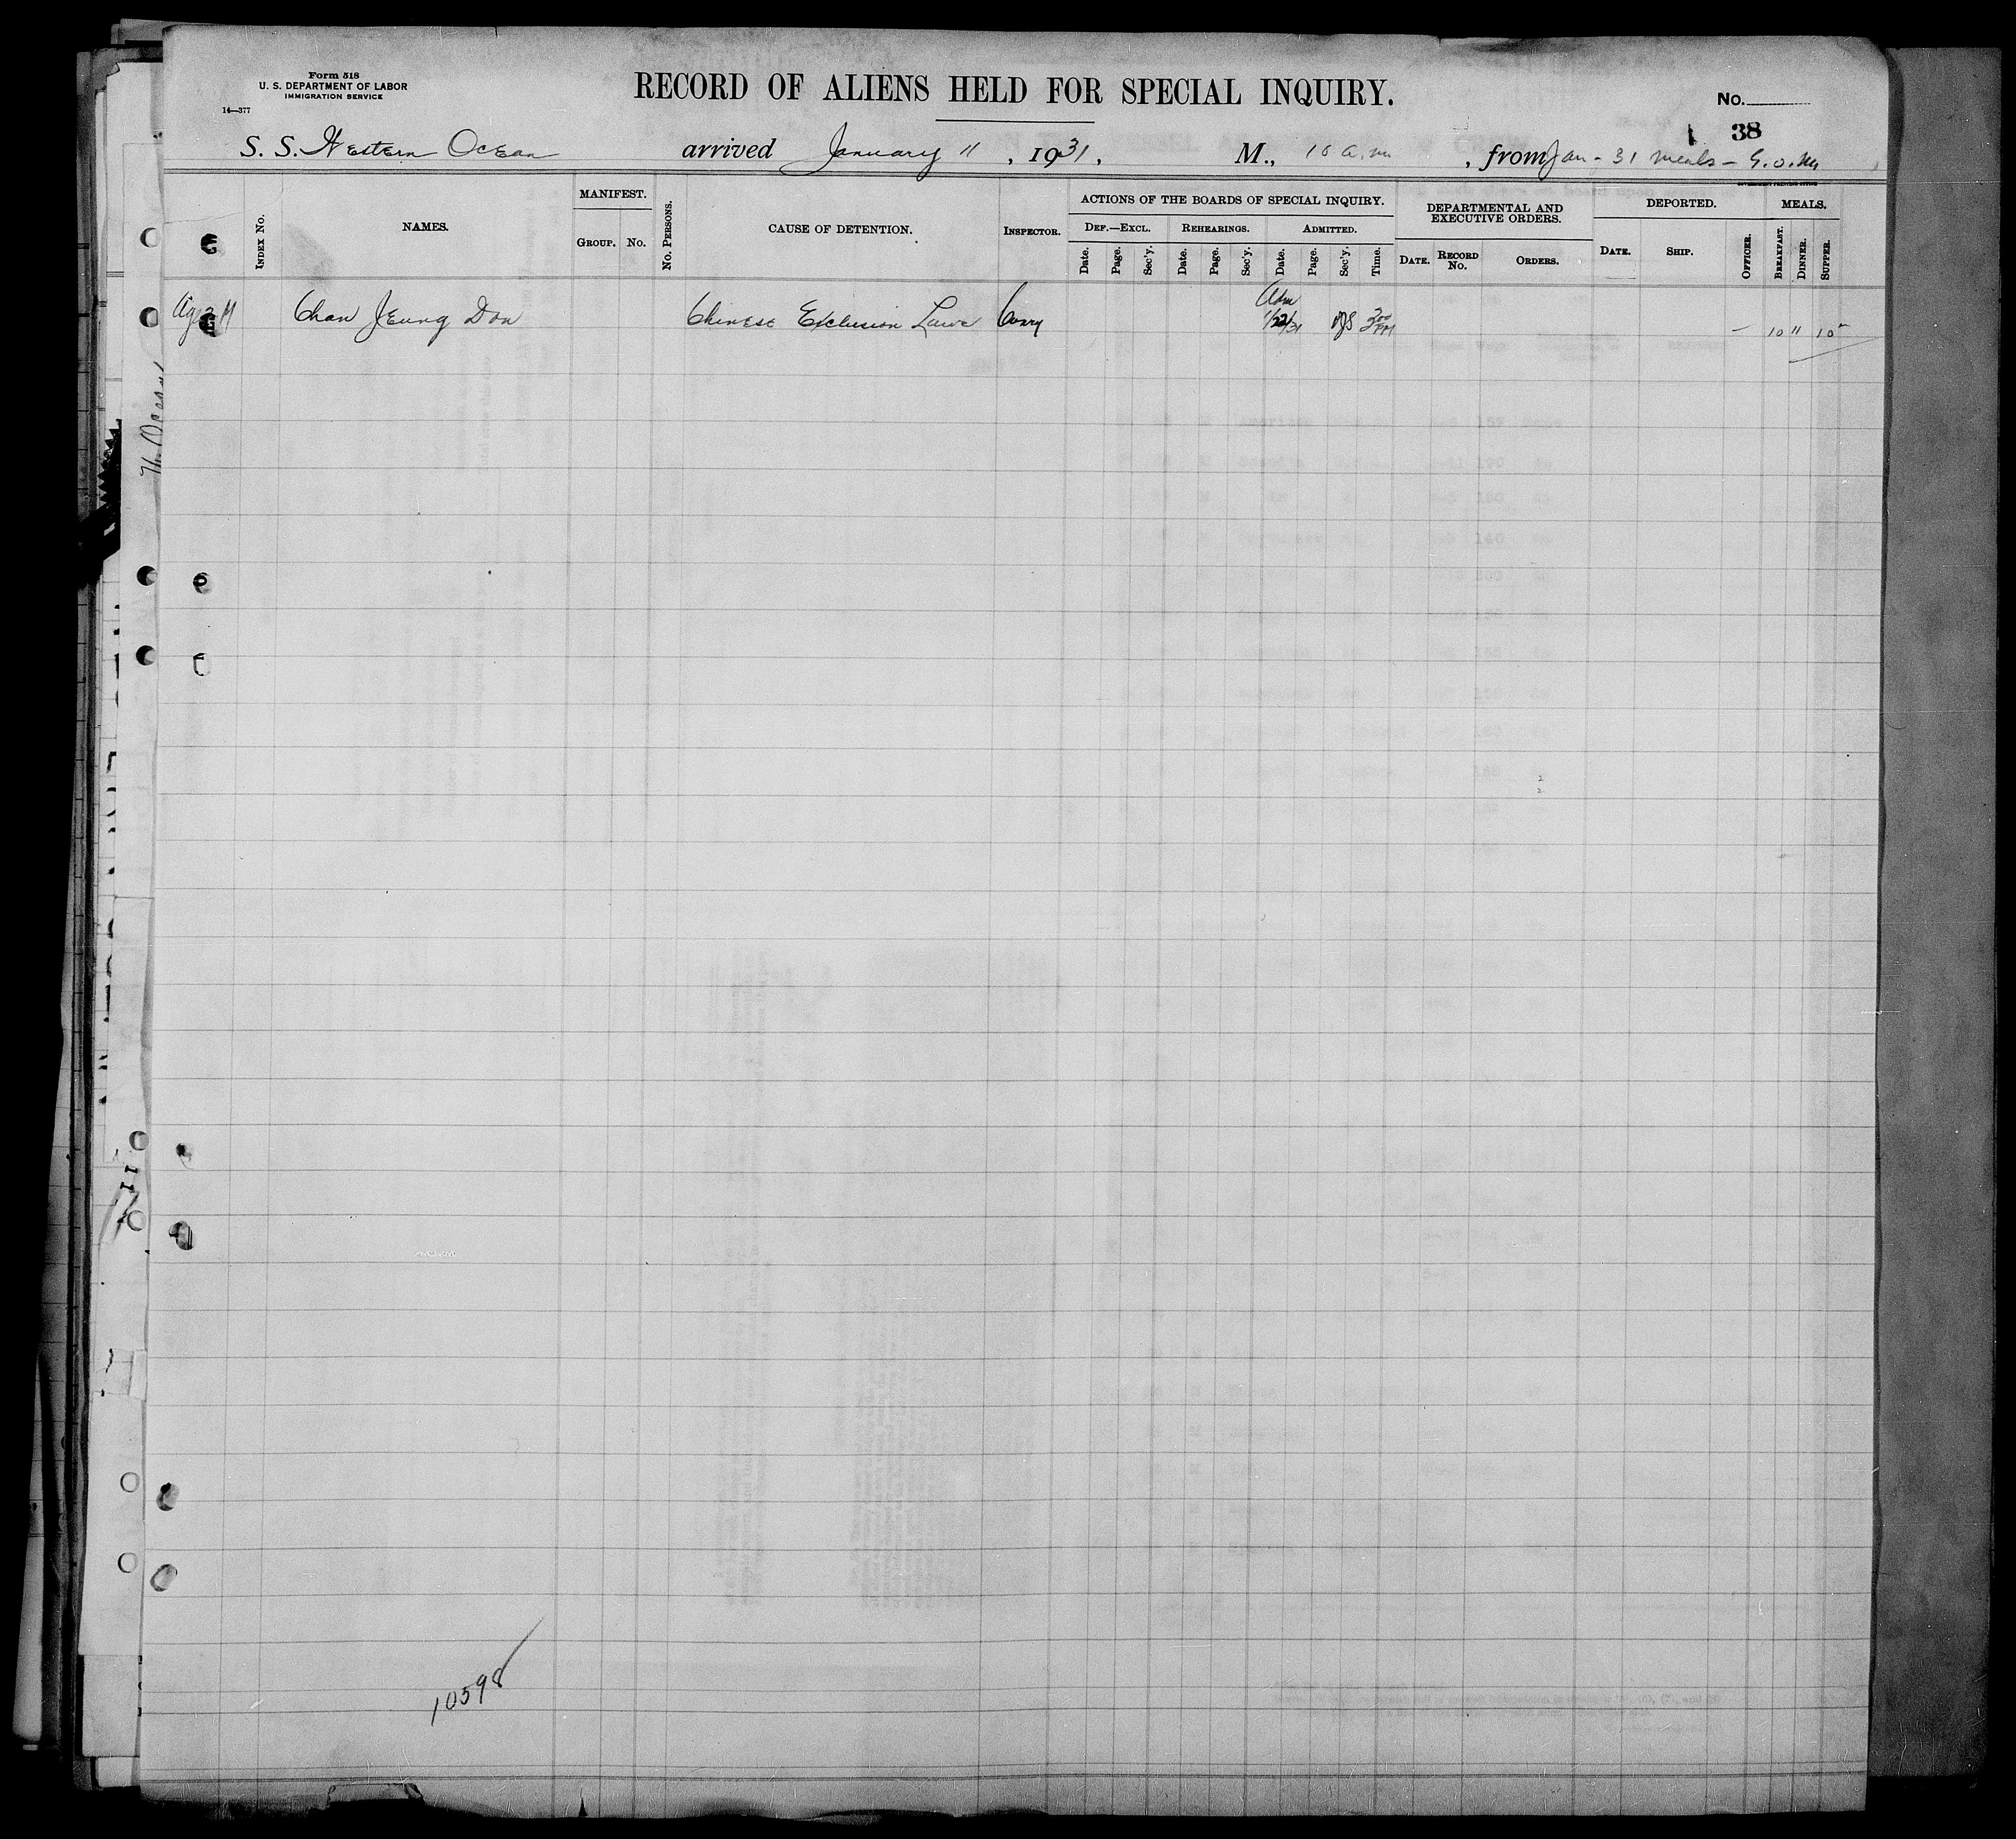 Form 518
U. S. DEPARTMENT OF LABOR
IMMIGRATION SERVICE
14—377
RECORD OF ALIENS HELD FOR SPECIAL INQUIRY.
No.
38
S. S. Western Ocean arrived January 11, 1931, M., 10 a.m, from Jan - 31 meals - G.O.M
GOVERNMENT PRINTING OFFICE
INDEX No. NAMES. MANIFEST. GROUP. No. No. PERSONS. CAUSE OF DETENTION. INSPECTOR.
ACTIONS OF THE BOARDS OF SPECIAL INQUIRY.
DEF.—EXCL. REHEARINGS. ADMITTED.
Date. Page. Sec'y. Date. Page. Sec'y. Date. Page. Sec'y. Time.
DEPARTMENTAL AND EXECUTIVE ORDERS.
DATE. RECORD No. ORDERS.
DEPORTED.
DATE. SHIP. OFFICER.
MEALS.
BREAKFAST. DINNER. SUPPER.
Chan Jeung Don Chinese Exclusion Laws Adm 1/22/31 200 PM — 10 11 10
10598